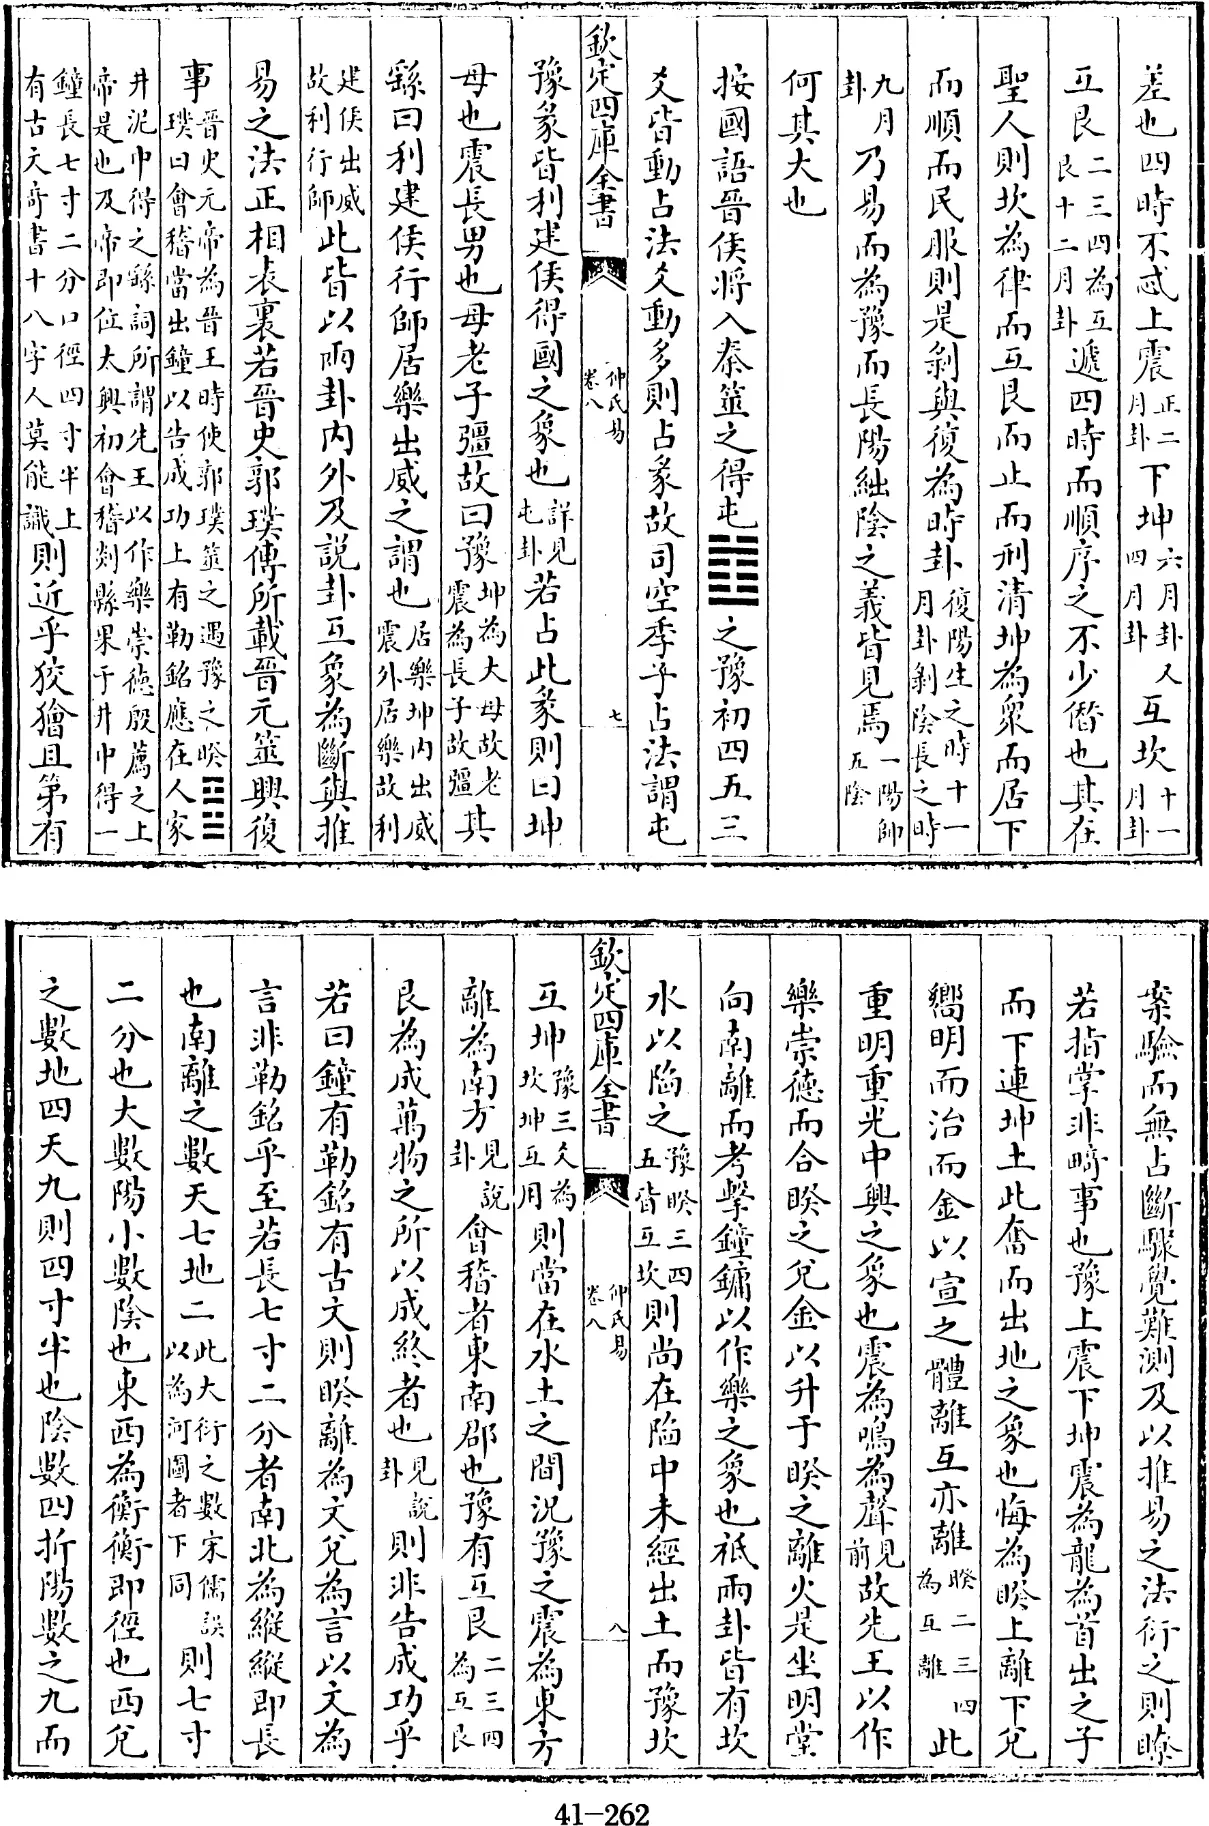 差也四時不忒上震正二月卦下坤六月卦又四月卦互坎十一月卦
互艮二三四為互艮十二月卦遞四時而順序之不少僭也其在
聖人則坎為律而互艮而止而刑清坤為衆而居下
而順而民服則是剝與復為時卦復陽生之時十一月卦剝陰長之時
九月卦乃易而為豫而長陽絀陰之義皆見焉一陽帥五陰
何其大也
按國語晉侯將入秦筮之得屯䷂之豫初四五三
爻皆動占法爻動多則占彖故司空季子占法謂屯
欽定四庫全書 仲氏易卷八 七
豫彖皆利建侯得國之象也詳見屯卦若占此彖則曰坤
母也震長男也母老子彊故曰豫坤為大母故老震為長子故彊其
繇曰利建侯行師居樂出威之謂也居樂坤内出威震外居樂故利
建侯出威故利行師此皆以兩卦内外及説卦互象為斷與推
易之法正相表裏若晉史郭璞傳所載晉元筮興復
事晉史元帝為晉王時使郭璞筮之遇豫之睽䷥璞曰會稽當出鐘以告成功上有勒銘應在人家
井泥中得之繇詞所謂先王以作樂崇德殷薦之上帝是也及帝即位太興初會稽剡縣果于井中得一
鐘長七寸二分口徑四寸半上有古文奇書十八字人莫能識則近乎狡獪且第有
案驗而無占斷驟覺難測及以推易之法衍之則瞭
若指掌非畸事也豫上震下坤震為龍為首出之子
而下連坤土此奮而出地之象也悔為睽上離下兌
嚮明而治而金以宣之體離互亦離睽二三四為互離此
重明重光中興之象也震為鳴為聲見前故先王以作
樂崇德而合睽之兌金以升于睽之離火是坐明堂
向南離而考擊鐘鏞以作樂之象也祗兩卦皆有坎
水以陷之豫睽三四五皆互坎則尚在陷中未經出土而豫坎
欽定四庫全書 仲氏易卷八 八
互坤豫三爻為坎坤互用則當在水土之間況豫之震為東方
離為南方見説卦會稽者東南郡也豫有互艮二三四為互艮
艮為成萬物之所以成終者也見説卦則非告成功乎
若曰鐘有勒銘有古文則睽離為文兌為言以文為
言非勒銘乎至若長七寸二分者南北為縱縱即長
也南離之數天七地二此大衍之數宋儒誤以為河圖者下同則七寸
二分也大數陽小數陰也東西為衡衡即徑也西兌
之數地四天九則四寸半也陰數四折陽數之九而
41-262